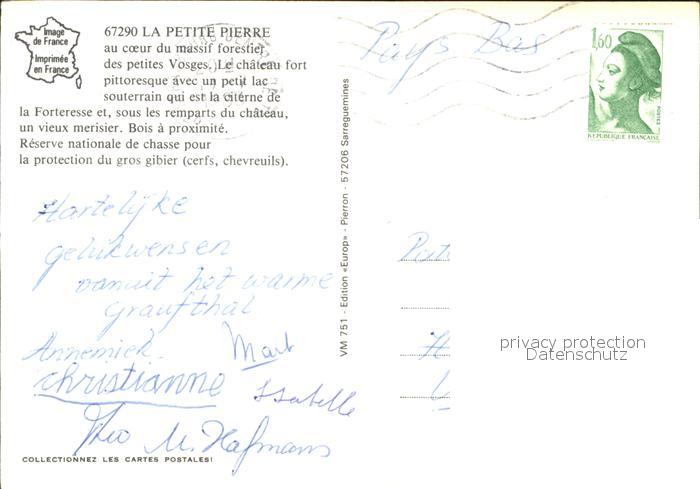 Image
de France
Imprimée
en France
67290 LA PETITE PIERRE
au cœur du massif forestier
des petites Vosges. Le château fort
pittoresque avec un petit lac
souterrain qui est la citerne de
la Forteresse et, sous les remparts du château,
un vieux merisier. Bois à proximité.
Réserve nationale de chasse pour
la protection du gros gibier (cerfs, chevreuils).
Hartelijke
gelukwensen
vanuit het warme
Graufthal
Annemiek. Mart
Christianne Isabelle
Theo M. Hafmans
COLLECTIONNEZ LES CARTES POSTALES!
VM 751 - Edition «Europ» - Pierron - 57206 Sarreguemines
Pays Bas
1,60
POSTES
REPUBLIQUE FRANÇAISE
privacy protection
Datenschutz